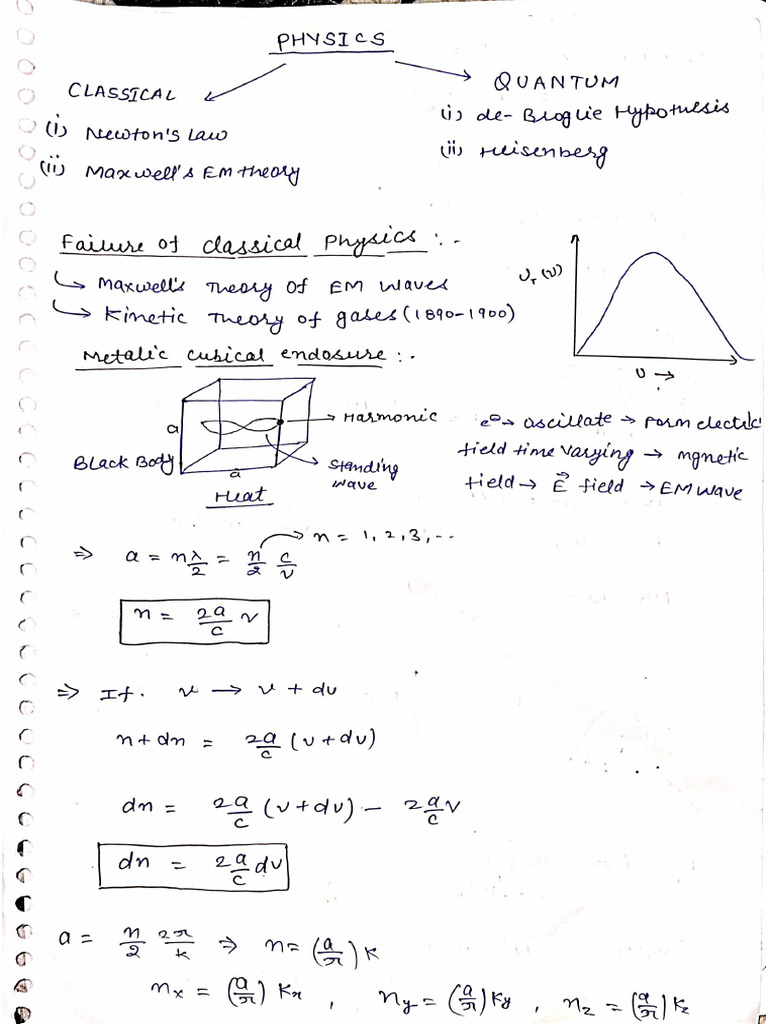 PHYSICS
CLASSICAL
(i) Newton's Law
(ii) Maxwell's EM theory
QUANTUM
(i) de-Broglie Hypothesis
(ii) Heisenberg
Failure of classical Physics :-
↳ Maxwell's Theory Of EM Waves
↳ Kinetic Theory of gases (1890-1900)
Uᵣ(ν)
ν →
Metalic cubical endosure :-
a
a
Black Body
Heat
→ Harmonic
Standing
wave
e⊖→ oscillate → Form electric
field time varying → mgnetic
field → E⃗ field → EM wave
⇒ a = nλ/2 = n/2 c/ν → n = 1, 2, 3, --
n = 2a/c ν
⇒ If. ν → ν + dν
n + dn = 2a/c (ν + dν)
dn = 2a/c (ν + dν) - 2a/c ν
dn = 2a/c dν
a = n/2 2π/k ⇒ n = (a/π) k
nₓ = (a/π) Kₓ , n_y = (a/π) K_y , n_z = (a/π) K_z